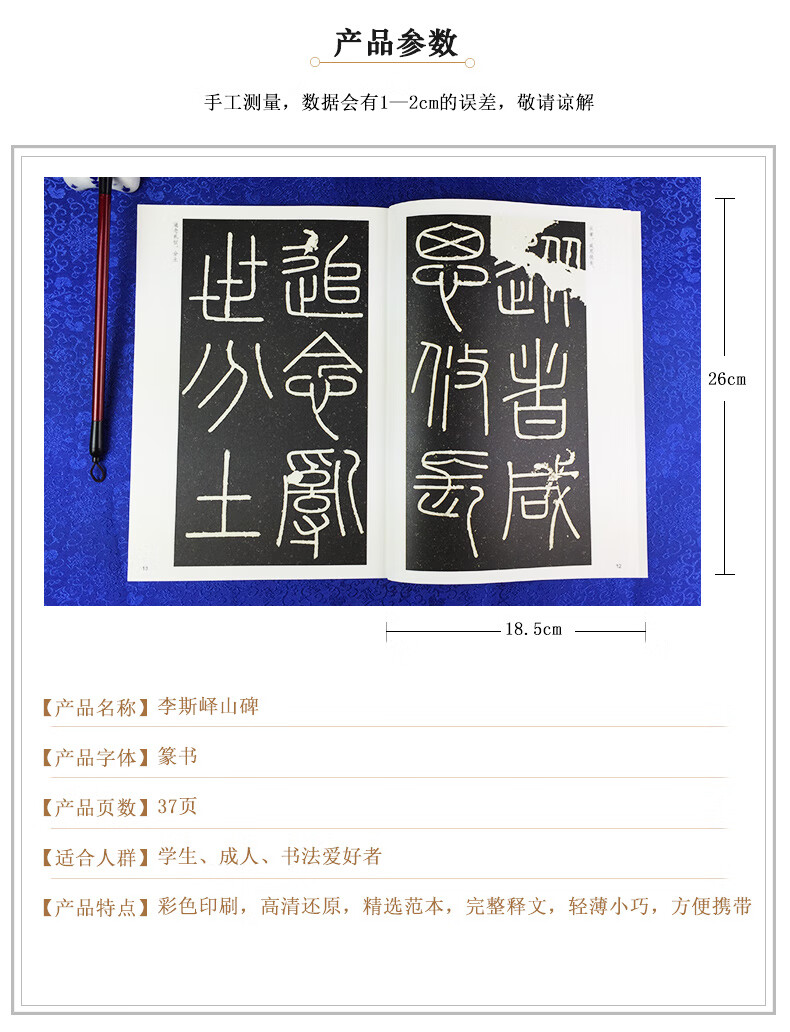 产品参数
手工测量，数据会有1—2cm的误差，敬请谅解
從者咸
思攸長
12
追念亂
世分土
13
26cm
18.5cm
【产品名称】李斯峄山碑
【产品字体】篆书
【产品页数】37页
【适合人群】学生、成人、书法爱好者
【产品特点】彩色印刷，高清还原，精选范本，完整释文，轻薄小巧，方便携带